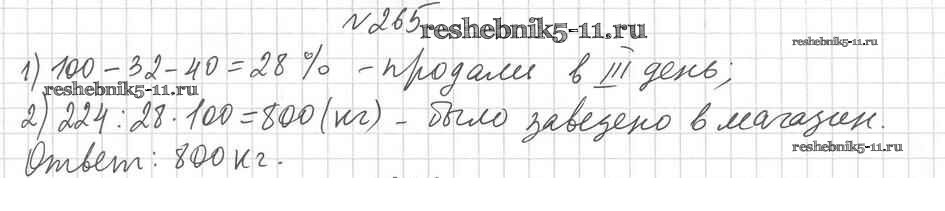 №265 reshebnik5-11.ru
reshebnik5-11.ru
1) 100-32-40=28% - продали в III день;
reshebnik5-11.ru
2) 224:28·100=800(кг) - было завезено в магазин.
reshebnik5-11.ru
Ответ: 800кг.